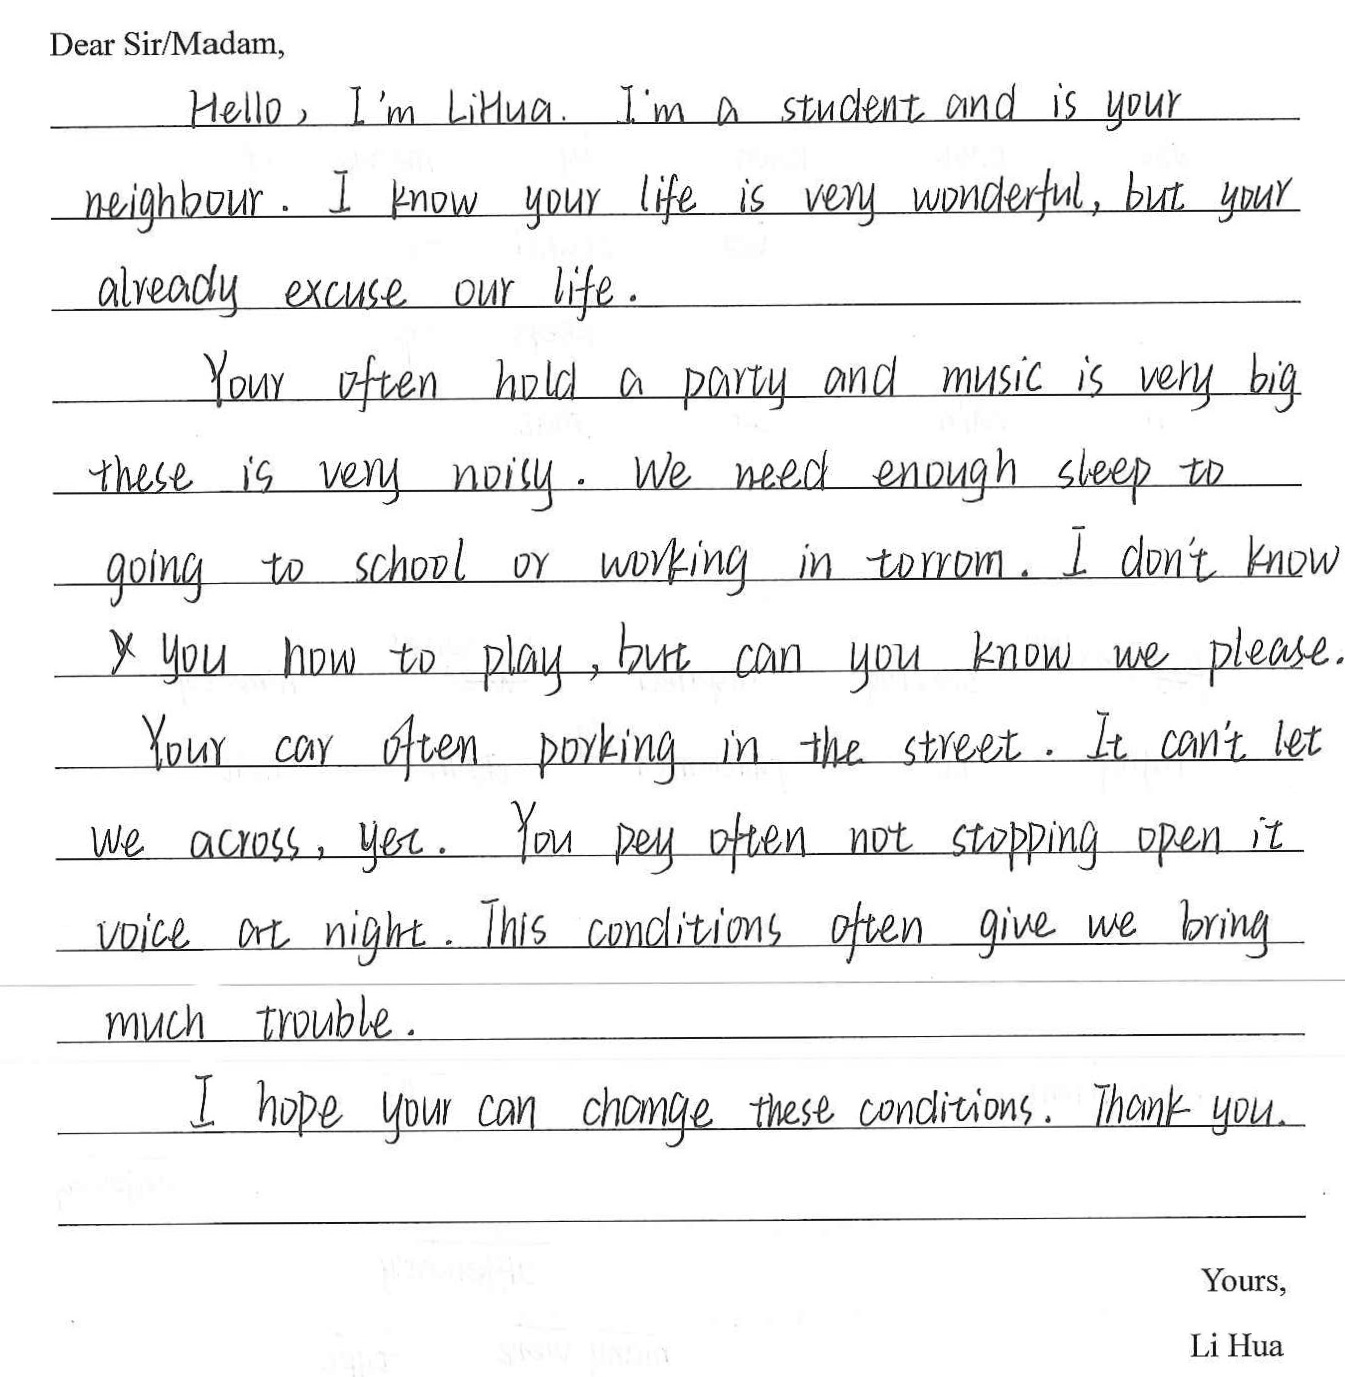 Dear Sir/Madam,
Hello, I'm LiHua. I'm a student and is your
neighbour. I know your life is very wonderful, but your
already excuse our life.
Your often hold a party and music is very big
these is very noisy. We need enough sleep to
going to school or working in torrom. I don't know
you how to play, but can you know we please.
Your car often porking in the street. It can't let
we across, yet. You pey often not stopping open it
voice at night. This conditions often give we bring
much trouble.
I hope your can change these conditions. Thank you.
Yours,
Li Hua